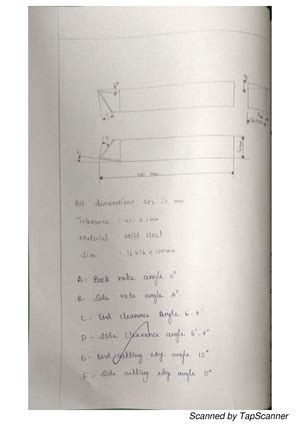 100 mm
All dimensions are in mm
Tolerance : +/- 0.1mm
Material Mild steel
Size : 16x16x100mm
A - Back rake angle 0°
B - Side rake angle
C - End clearance Angle 6-8°
D - Side clearance angle 6°-8°
E - End cutting edge angle 12°
F - Side cutting edge angle 0°
Scanned by TapScanner